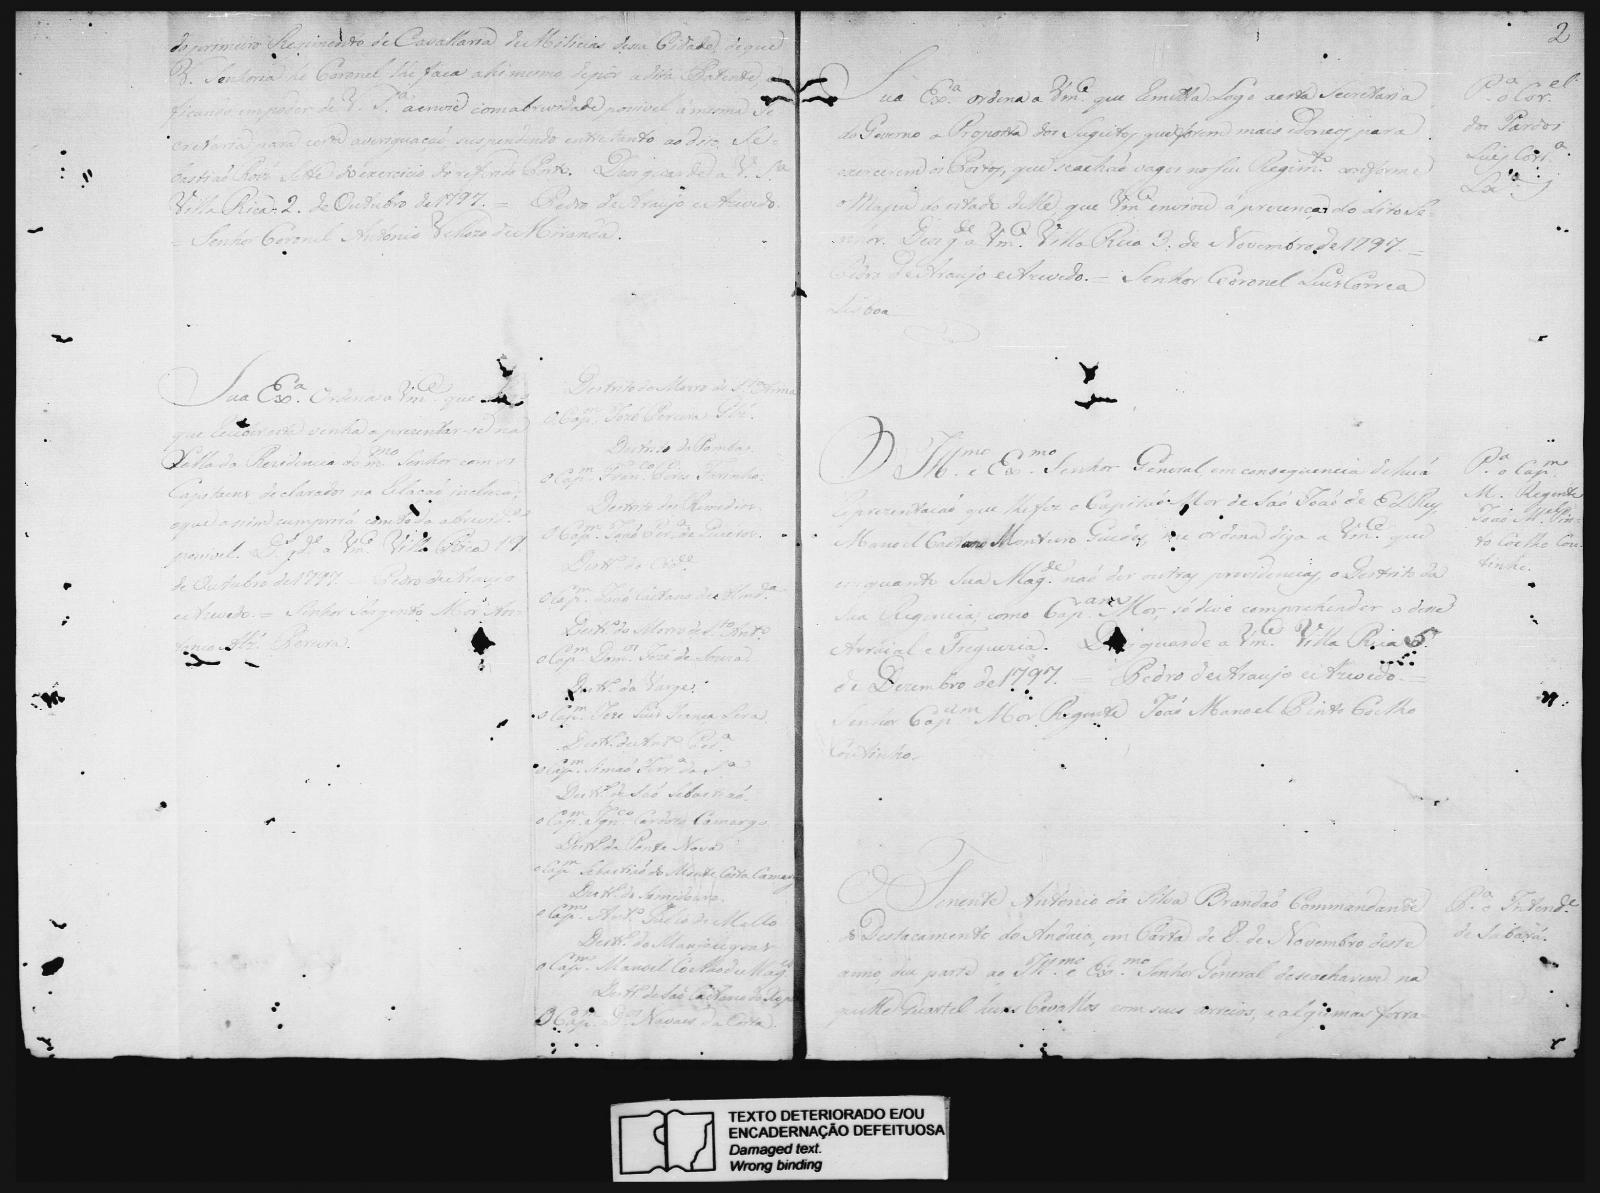 do primeiro Regimento de Cavallaria de Milicias desta Cidade, de que
V. Senhoria he Coronel lhe faça ahi mesmo depôr a dita Patente, e
ficando em poder de V. S.ª a envie com a brevidade possivel á mesma Se-
cretaria para certa averiguaçaõ, suspendendo entretanto ao dito Se-
bastiaõ do exercicio do referido Posto. Deos guarde a V. S.ª
Villa Rica 2. de Outubro de 1797. = Pedro de Araujo e Azevedo.
= Senhor Coronel Antonio Vellozo de Miranda.
Sua Ex.ª Ordena a Vm.ce que
que receber esta venha a prezentar-se na
Salla da Rezidencia do m.mo Senhor com os
Capitaens declarados na Relaçaõ incluza;
o que assim cumprirá com toda a brevid.e
possivel. D.s g.de a Vm.ce Villa Rica 19.
de Outubro de 1797. = Pedro de Araujo
e Azevedo. = Senhor Sargento Mór An-
tonio Alz' Pereira.
Destrito do Morro de S.ta Anna
O Cap.m José Pereira
Destrito da Pomba
O Cap.m Fran.co Farinho.
Destrito dos Remedios
O Cap.m Joaõ
Destr.o do
O Cap.m Joaõ Caetano de Almd.a
Destr.o do Morro de S.to Ant.o
O Cap.m Dom.os José de Souza
Destr.o da Varge.
O Cap.m Jozé Luis França Lira
Destr.o de Ant.o Per.a
O Cap.m Simaõ Ferr.a da S.a
Destr.o de Saõ Sebastiaõ.
O Cap.m Ign.co Cardozo Camargo
Destr.o da Ponte Nova
O Cap.m Sebastiaõ do Monte Costa Camarg
Destr.o do Sumidouro.
O Cap.m Ant.o de Mello
Destr.o do
O Cap.m Manoel Coelho de Mag.es
Destr.o de Saõ Caetano do
O Cap.m D.os Novaes da Costa
2
Sua Ex.ª ordena a Vm.ce que remetta logo a esta Secretaria
do Governo a Proposta dos Sugeitos que forem mais idoneos para
exercerem os Postos, que se achaõ vagos no seu Regim.to conforme
o Mappa do estado delle que Vm.ce enviou á prezença do dito Se-
nhor. Deos g.de a Vm.ce Villa Rica 3. de Novembro de 1797. =
Pedro de Araujo e Azevedo. = Senhor Coronel Luis Correa
Lisboa
P.a o Cor.el
dos Pardos
Luis Corr.a
Lx.a
O Ill.mo e Ex.mo Senhor General em consequencia de huá
Reprezentaçaõ que lhe fez o Capitaõ Mór de Saõ Joaõ de El Rey
Manoel Caetano Monteiro Guedes, me ordena diga a Vm.ce que
em quanto Sua Mag.de naõ der outras providencias, o Destrito da
sua Regencia, como Cap.am Mór, só deve comprehender o desse
Arraial e Freguezia. Deos guarde a Vm.ce Villa Rica 5
de Dezembro de 1797. = Pedro de Araujo e Azevedo. =
Senhor Cap.am Mor Regente Joaõ Manoel Pinto Coelho
Coutinho.
P.a o Cap.m
M. Regente
Joaõ M.el Pin-
to Coelho Cou-
tinho.
O Tenente Antonio da Silva Brandaõ Commandante
do Destacamento do Andaia, em Carta de 8. de Novembro deste
anno, deu parte ao Ill.mo e Ex.mo Senhor General de se acharem na
quelle Quartel huns Cavallos com seus arreios, e algumas ferra-
P.a o Intend.e
de Sabará.
TEXTO DETERIORADO E/OU
ENCADERNAÇÃO DEFEITUOSA
Damaged text.
Wrong binding